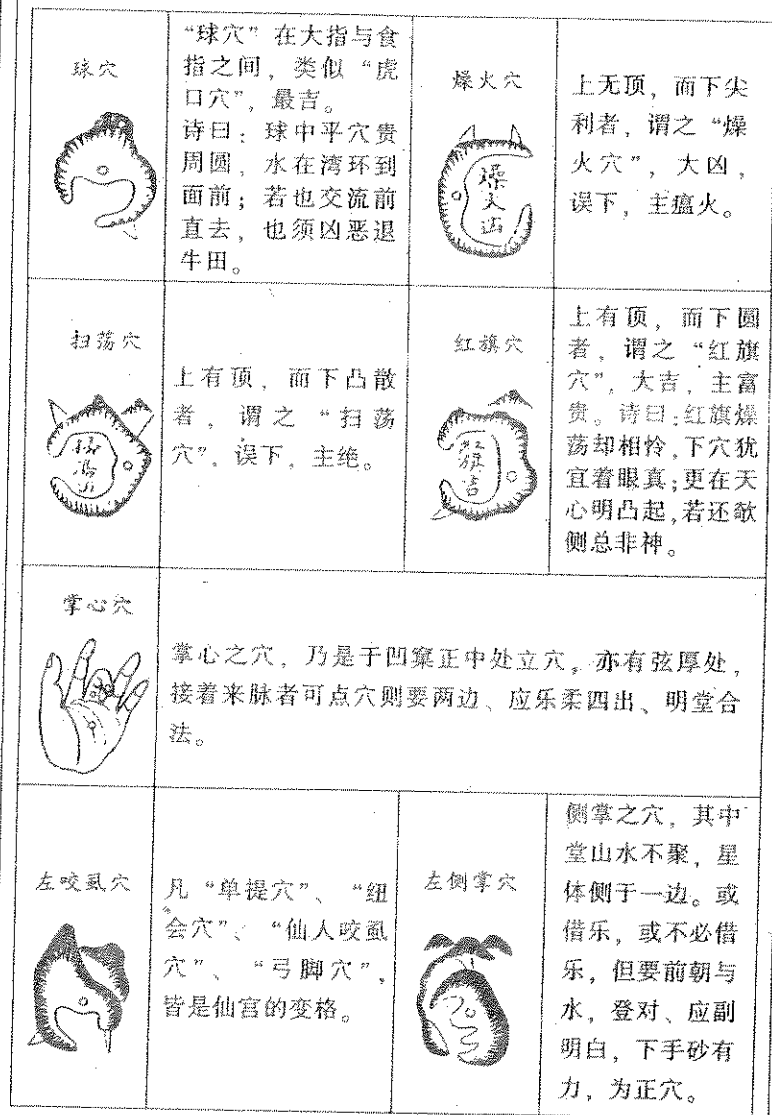 球穴
“球穴”在大指与食
指之间，类似“虎
口穴”，最吉。
诗曰：球中平穴贵
周圆，水在湾环到
面前；若也交流前
直去，也须凶恶退
牛田。
燥火穴
燥火凶
上无顶，而下尖
利者，谓之“燥
火穴”，大凶，
误下，主瘟火。
扫荡穴
扫荡凶
上有顶，而下凸散
者，谓之“扫荡
穴”，误下，主绝。
红旗穴
红旗吉
上有顶，而下圆
者，谓之“红旗
穴”，大吉，主富
贵。诗曰：红旗燥
荡却相怜，下穴犹
宜着眼真；更在天
心明凸起，若还欹
侧总非神。
掌心穴
掌心之穴，乃是于凹窠正中处立穴，亦有弦厚处，
接着来脉者可点穴则要两边、应乐柔四出、明堂合
法。
左咬虱穴
凡“单提穴”、“纽
会穴”、“仙人咬虱
穴”、“弓脚穴”，
皆是仙宫的变格。
左侧掌穴
侧掌之穴，其中
堂山水不聚，星
体侧于一边。或
借乐，或不必借
乐，但要前朝与
水，登对、应副
明白，下手砂有
力，为正穴。